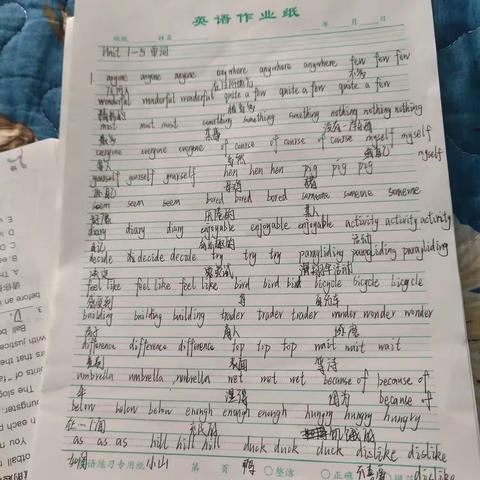 英语作业纸
班级 姓名 年 月 日
Unit 1-5 单词
1. anyone anyone anyone anywhere anywhere anywhere few few few
任何人 在任何地方 不多
wonderful wonderful wonderful quite a few quite a few quite a few
精彩的 相当多
most most most something something something nothing nothing nothing
最多 某事 没有一件东西
everyone everyone everyone of course of course of course myself myself
每人 当然 我自己 myself
yourself yourself yourself hen hen hen pig pig pig
你自己 母鸡 猪
seem seem seem bored bored bored someone someone someone
好像 厌倦的 某人
diary diary diary enjoyable enjoyable enjoyable activity activity activity
日记 有乐趣的 活动
decide decide decide try try try paragliding paragliding paragliding
决定 尝试 滑翔伞运动
feel like feel like feel like bird bird bird bicycle bicycle bicycle
感受到 鸟 自行车
building building building trader trader trader wonder wonder wonder
房子 商人
difference difference difference top top top wait wait wait
差别 顶面 等待
umbrella umbrella umbrella wet wet wet because of because of
伞 湿的 因为 because of
below below below enough enough enough hungry hungry hungry
在一下面 充足的 饥饿的
as as as hill hill hill duck duck duck dislike dislike
如同 语练习专用纸 小山 第 页 鸭 整洁 正确 不喜爱 dislike